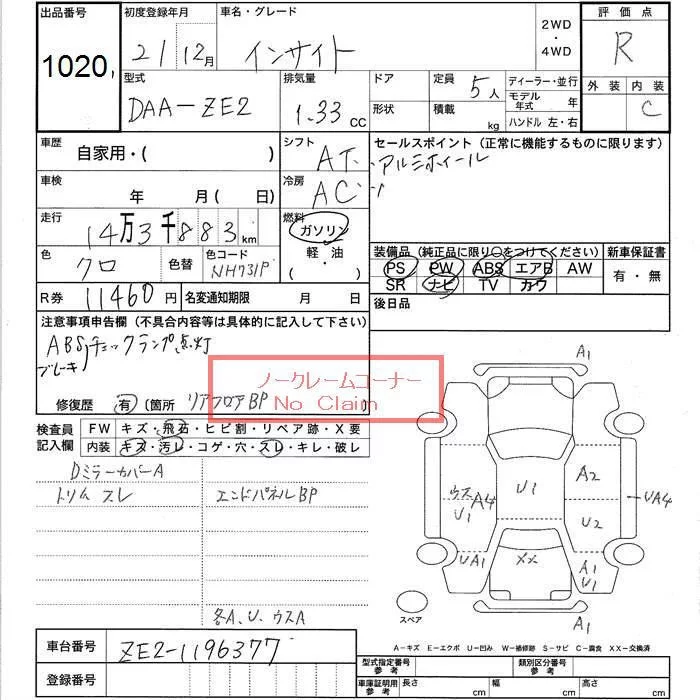 出品番号 初度登録年月 車名・グレード 2WD・4WD 評価点
1020 21/12月 インサイト R
型式 排気量 ドア 定員 5人 ディーラー・並行 外装 内装
DAA-ZE2 1.33cc 形状 積載 kg モデル年式 年 C
ハンドル 左・右
車歴 自家用・( ) シフト AT セールスポイント（正常に機能するものに限ります）
アルミホイール
車検 年 月(日) 冷房 AC
走行 14万3千883km 燃料 ガソリン・軽油・( )
装備品（純正品に限り○をつけてください） 新車保証書
色 クロ 色替 色コード NH731P
PS PW ABS エアB AW 有・無
SR ナビ TV カワ
R券 11460円 名変通知期限 月 日 後日品
注意事項申告欄（不具合内容等は具体的に記入して下さい）
ABS チェックランプ点灯
ブレーキ
ノークレームコーナー
No Claim
修復歴 有 〔箇所 リアフロアBP 〕
検査員記入欄 FW キズ・飛石・ヒビ割・リペア跡・X要
内装 キズ・汚レ・コゲ・穴・スレ・キレ・破レ
DミラーカバーA
トリム スレ エンドパネルBP
各A、U、ウスA
A1
A2
U1
ウスA4
U1
U2
UA4
UA1
XX
A1
U1
A1
スペア
A-キズ E-エクボ U-凹み W-補修跡 S-サビ C-腐食 XX-交換済
車台番号 ZE2-1196377
登録番号
型式指定番号 参考 類別区分番号 参考
車庫証明用 参考 長さ cm 幅 cm 高さ cm